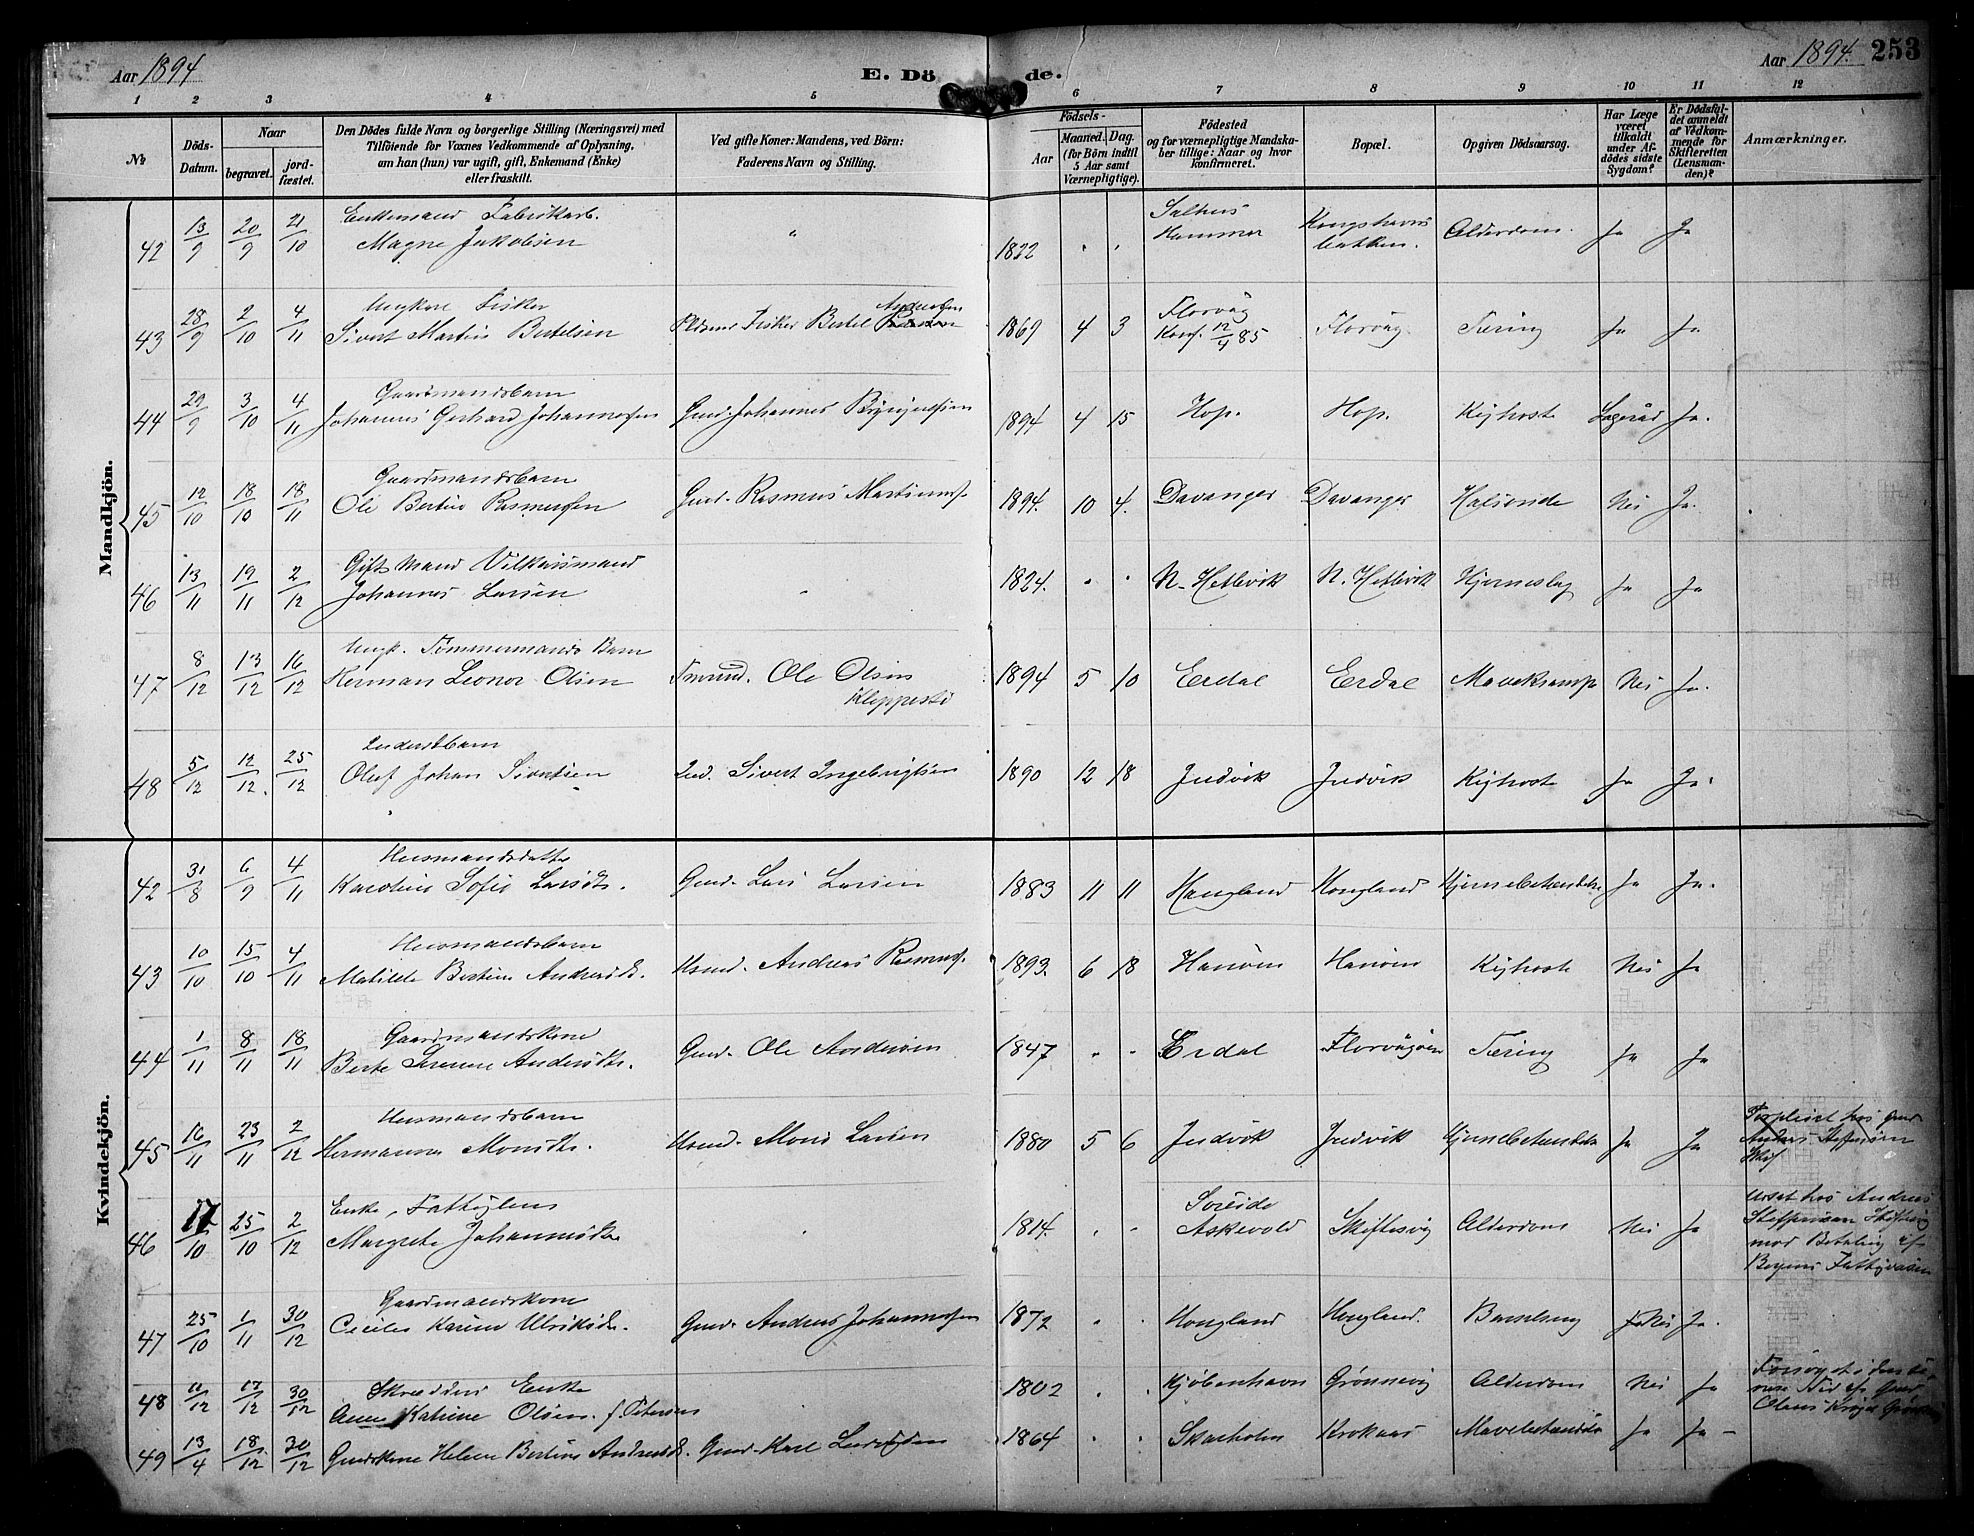 Aar 1894
E. Dö de.
Aar 1894. 253
1 2 3 4 5 6 7 8 9 10 11 12
№
Döds-Datum.
Naar
begravet.
jord-fæstet.
Den Dödes fulde Navn og borgerlige Stilling (Næringsvei) med
Tilföiende for Voxnes Vedkommende af Oplysning,
om han (hun) var ugift, gift, Enkemand (Enke)
eller fraskilt.
Ved gifte Koner: Mandens, ved Börn:
Faderens Navn og Stilling.
Födsels-
Aar
Maaned. Dag.
(for Börn indtil
5 Aar samt
Værnepligtige).
Födested
og for værnepligtige Mandska-
ber tillige: Naar og hvor
konfirmeret.
Bopæl.
Opgiven Dödsaarsag.
Har Læge
været
tilkaldt
under Af-
dödes sidste
Sygdom?
Er Dödsfal-
det anmeldt
af Vedkom-
mende for
Skifteretten
(Lensman-
den)?
Anmærkninger.
Mandkjön.
42 13/9 20/9 21/10 Enkemand Fabrikarb.
Magne Jakobsen " 1822 Salhus Hammer Kongshavns bakken. Alderdom. Ja Ja
43 28/9 2/10 4/11 Ungkarl Fisker
Sivert Martin Bertelsen Fisker Bertel Andersen 1869 4 3 Florvåg Konf. 12/4 85 Florvåg. Tæring Ja Ja
44 29/9 3/10 4/11 Gaardmandsbarn
Johannes Gerhard Johannesen Gmd. Johannes 1894 4 15 Hop. Hop. Kighoste Ja.
45 12/10 18/10 18/11 Gaardmandsbarn
Ole Bertin Rasmussen Gmd. Rasmus Martinus 1894. 10 4. Davanger Davanger Halsonde Nei Ja.
46 13/11 19/11 2/12 Gift Mand Vilkaarsmand
Johannes Larsen 1824. N. Hetlevik N. Hetlevik Hjerneslag Ja Ja
47 8/12 13/12 16/12 Tømmermands Barn
Herman Leonor Olsen Ole Olsen
Kleppestø 1894 5 10 Erdal Erdal Mavekramp Nei Ja.
48 5/12 12/12. 25/12 Inderstbarn
Oluf Johan Sivertsen Ind. Sivert Ingebrigtsen 1890 12 18 Indvik Indvik Kighoste Ja Ja
Kvindekjön.
42 31/8 6/9 4/11 Husmandsdatter
Karoline Sofie Larsdtr. Gmd. Lars Larsen 1883 11 11 Haugland Haugland Hjernebetændelse Ja Ja.
43 10/10 15/10 4/11 Husmandsbarn
Matilde Bertine Andreasdtr. Hsmd. Andreas Rasmus. 1893. 6 18 Hanøen Hanøen Kighoste Nei Ja
44 1/11 8/11 18/11 Gaardmandskone
Berte Andersdtr. Gmd. Ole Andersen 1847 Erdal Florvågøen Tæring Ja Ja
45 16/11 23/11 2/12 Husmandsbarn
Hermanne Monsdtr. Hsmd. Mons Larsen 1880 5 6 Indvik Indvik Hjernebetændelse Ja Ja hos Gmd.
Anders Steffensen
46 17/10 25/10 2/12 Enke, Fattiglem
Margrete Johannesdtr. 1814. Søreide Askevold Skiftesvig Alderdom Nei Ja hos Andreas
Steffensen Skiftesvig
mod Betaling af
Bergens Fattigvæsen
47 25/10 1/11 30/12 Gaardmandskone
Cecilie Karine Ulriksdtr. Gmd. Andreas Johannesen 1872 Haugland Haugland. Barselseng Nei Ja.
48 11/12 17/12 30/12 Skrædder Enke
Anne Katrine Olsen. f. Petersen 1802 Kjøbenhavn Grønnevig Alderdom Nei Ja
49 13/4 18/12 30/12 Gmdskone Helene Bertine Andreasdtr. Gmd. Karl 1864 Skarholm Krokaas Mavebetændelse Ja Ja